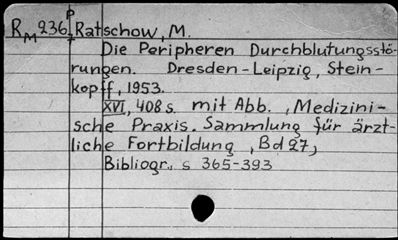 P
R M 236 Ratschow, M.
Die Peripheren Durchblutungsstö-
rungen. Dresden-Leipzig, Stein-
kopff, 1953.
XVI, 408 s. mit Abb. , Medizini-
sche Praxis. Sammlung für ärzt-
liche Fortbildung , Bd 27,
Bibliogr., s 365-393